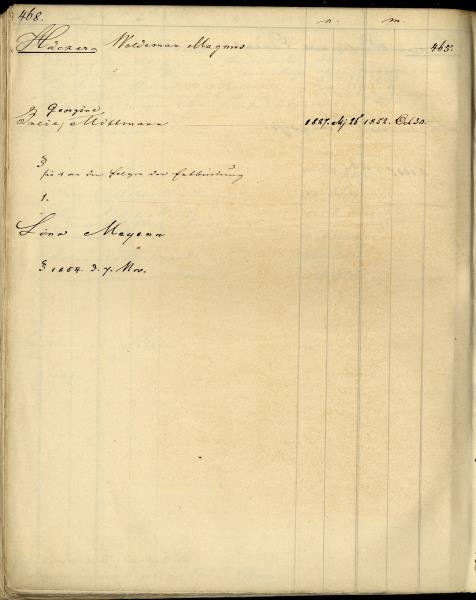 468.
n. m.
Häckers Woldemar Magnus 465.
Georgine
Mittmann 1827. Mj 25 1852. Oct 30.
§
sie † an den Folgen der Entbindung
1.
Lina Meyenn
§ 1854. d. 7. Nov.